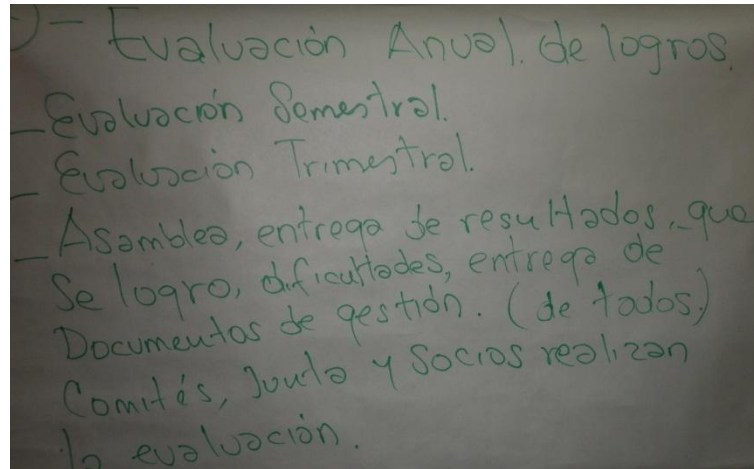 - Evaluación Anual. de logros.
- Evaluación Semestral.
- Evaluación Trimestral.
- Asamblea, entrega de resultados, que
se logro, dificultades, entrega de
Documentos de gestión. (de todos.)
Comités, Junta y Socios realizan
la evaluación.